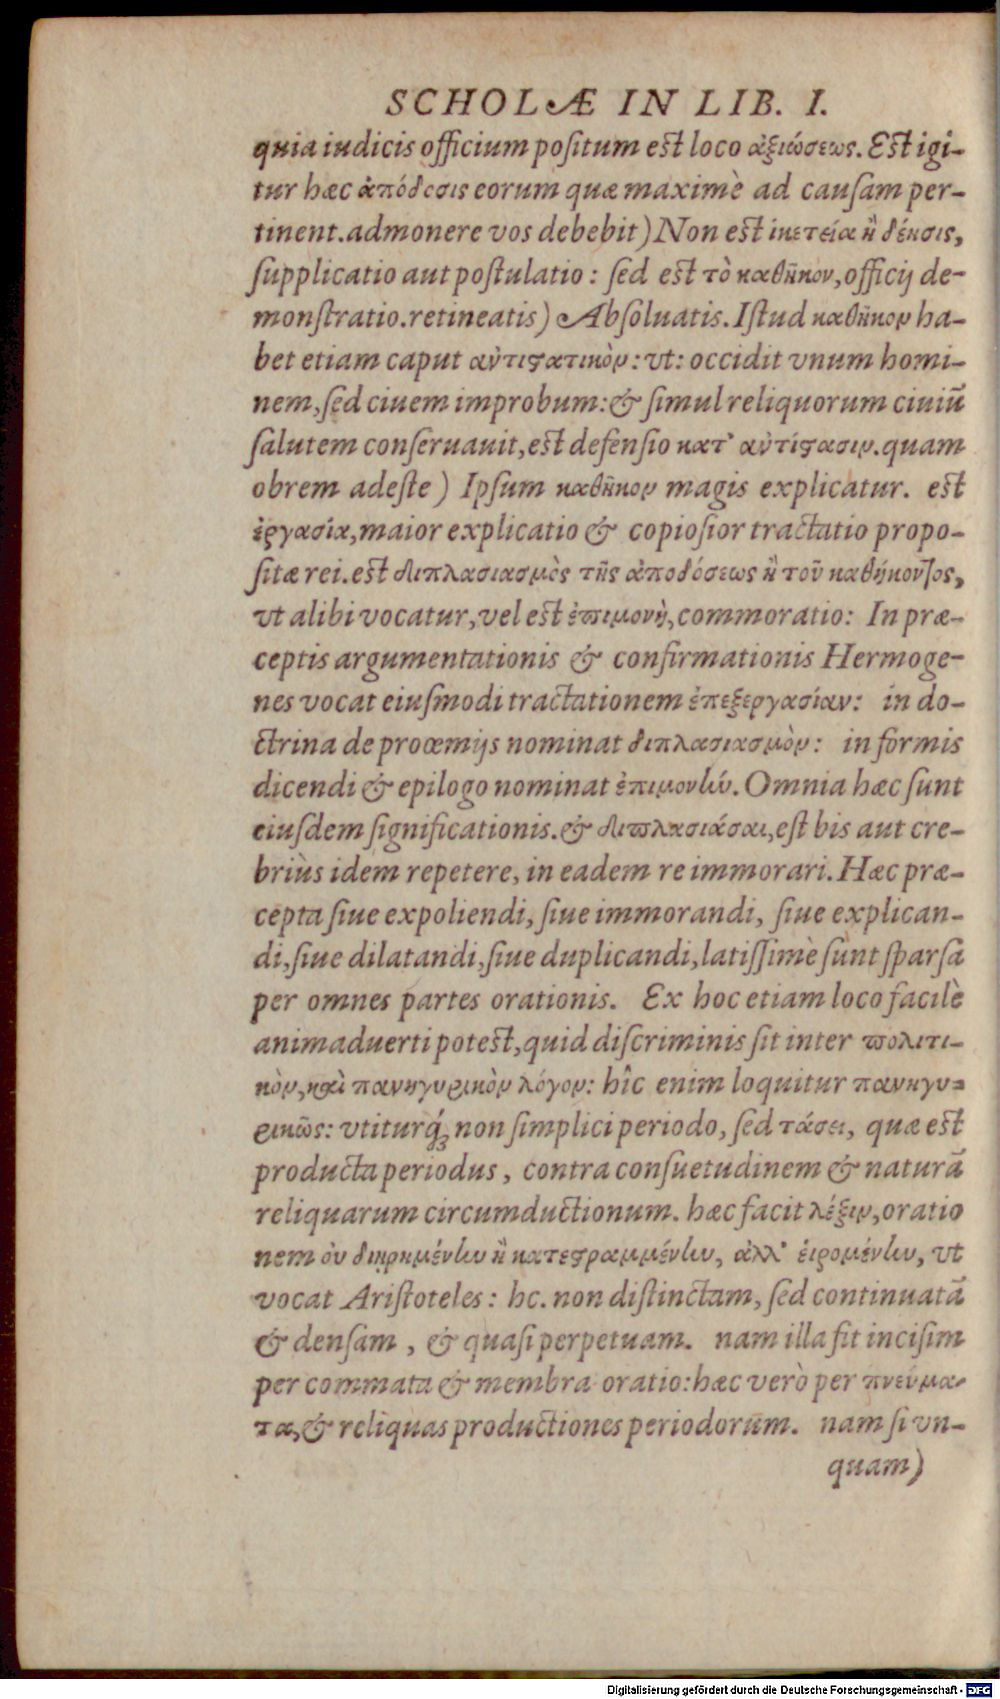 SCHOLÆ IN LIB. I.
quia iudicis officium positum est loco ἀξιώσεως. Est igi-
tur hæc ἀπόδοσις eorum quæ maximè ad causam per-
tinent. admonere vos debebit) Non est ἱκετεία ἢ δέησις,
supplicatio aut postulatio: sed est τὸ καθῆκον, officij de-
monstratio. retineatis) Absoluatis. Istud καθῆκον ha-
bet etiam caput ἀντιστατικὸν: vt: occidit vnum homi-
nem, sed ciuem improbum: & simul reliquorum ciuiū
salutem conseruauit, est defensio κατ' ἀντίστασιν. quam
obrem adeste) Ipsum καθῆκον magis explicatur. est
ἐργασία, maior explicatio & copiosior tractatio propo-
sitæ rei. est διπλασιασμὸς τῆς ἀποδόσεως ἢ τοῦ καθήκοντος,
vt alibi vocatur, vel est ἐπιμονὴ, commoratio: In præ-
ceptis argumentationis & confirmationis Hermoge-
nes vocat eiusmodi tractationem ἐπεξεργασίαν: in do-
ctrina de proœmijs nominat διπλασιασμὸν: in formis
dicendi & epilogo nominat ἐπιμονὴν. Omnia hæc sunt
eiusdem significationis. & διπλασιάσαι, est bis aut cre-
briùs idem repetere, in eadem re immorari. Hæc præ-
cepta siue expoliendi, siue immorandi, siue explican-
di, siue dilatandi, siue duplicandi, latissimè sunt sparsa
per omnes partes orationis. Ex hoc etiam loco facilè
animaduerti potest, quid discriminis sit inter πολιτι-
κὸν, καὶ πανηγυρικὸν λόγον: hîc enim loquitur πανηγυ-
ρικῶς: vtiturq́; non simplici periodo, sed τάσει, quæ est
producta periodus, contra consuetudinem & naturā
reliquarum circumductionum. hæc facit λέξιν, oratio
nem οὐ διῃρημένην ἢ κατεστραμμένην, ἀλλ' εἰρομένην, vt
vocat Aristoteles: hc. non distinctam, sed continuatā
& densam, & quasi perpetuam. nam illa fit incisim
per commata & membra oratio: hæc verò per πνεύμα-
τα, & reliquas productiones periodorum. nam si vn-
quam)
Digitalisierung gefördert durch die Deutsche Forschungsgemeinschaft - DFG